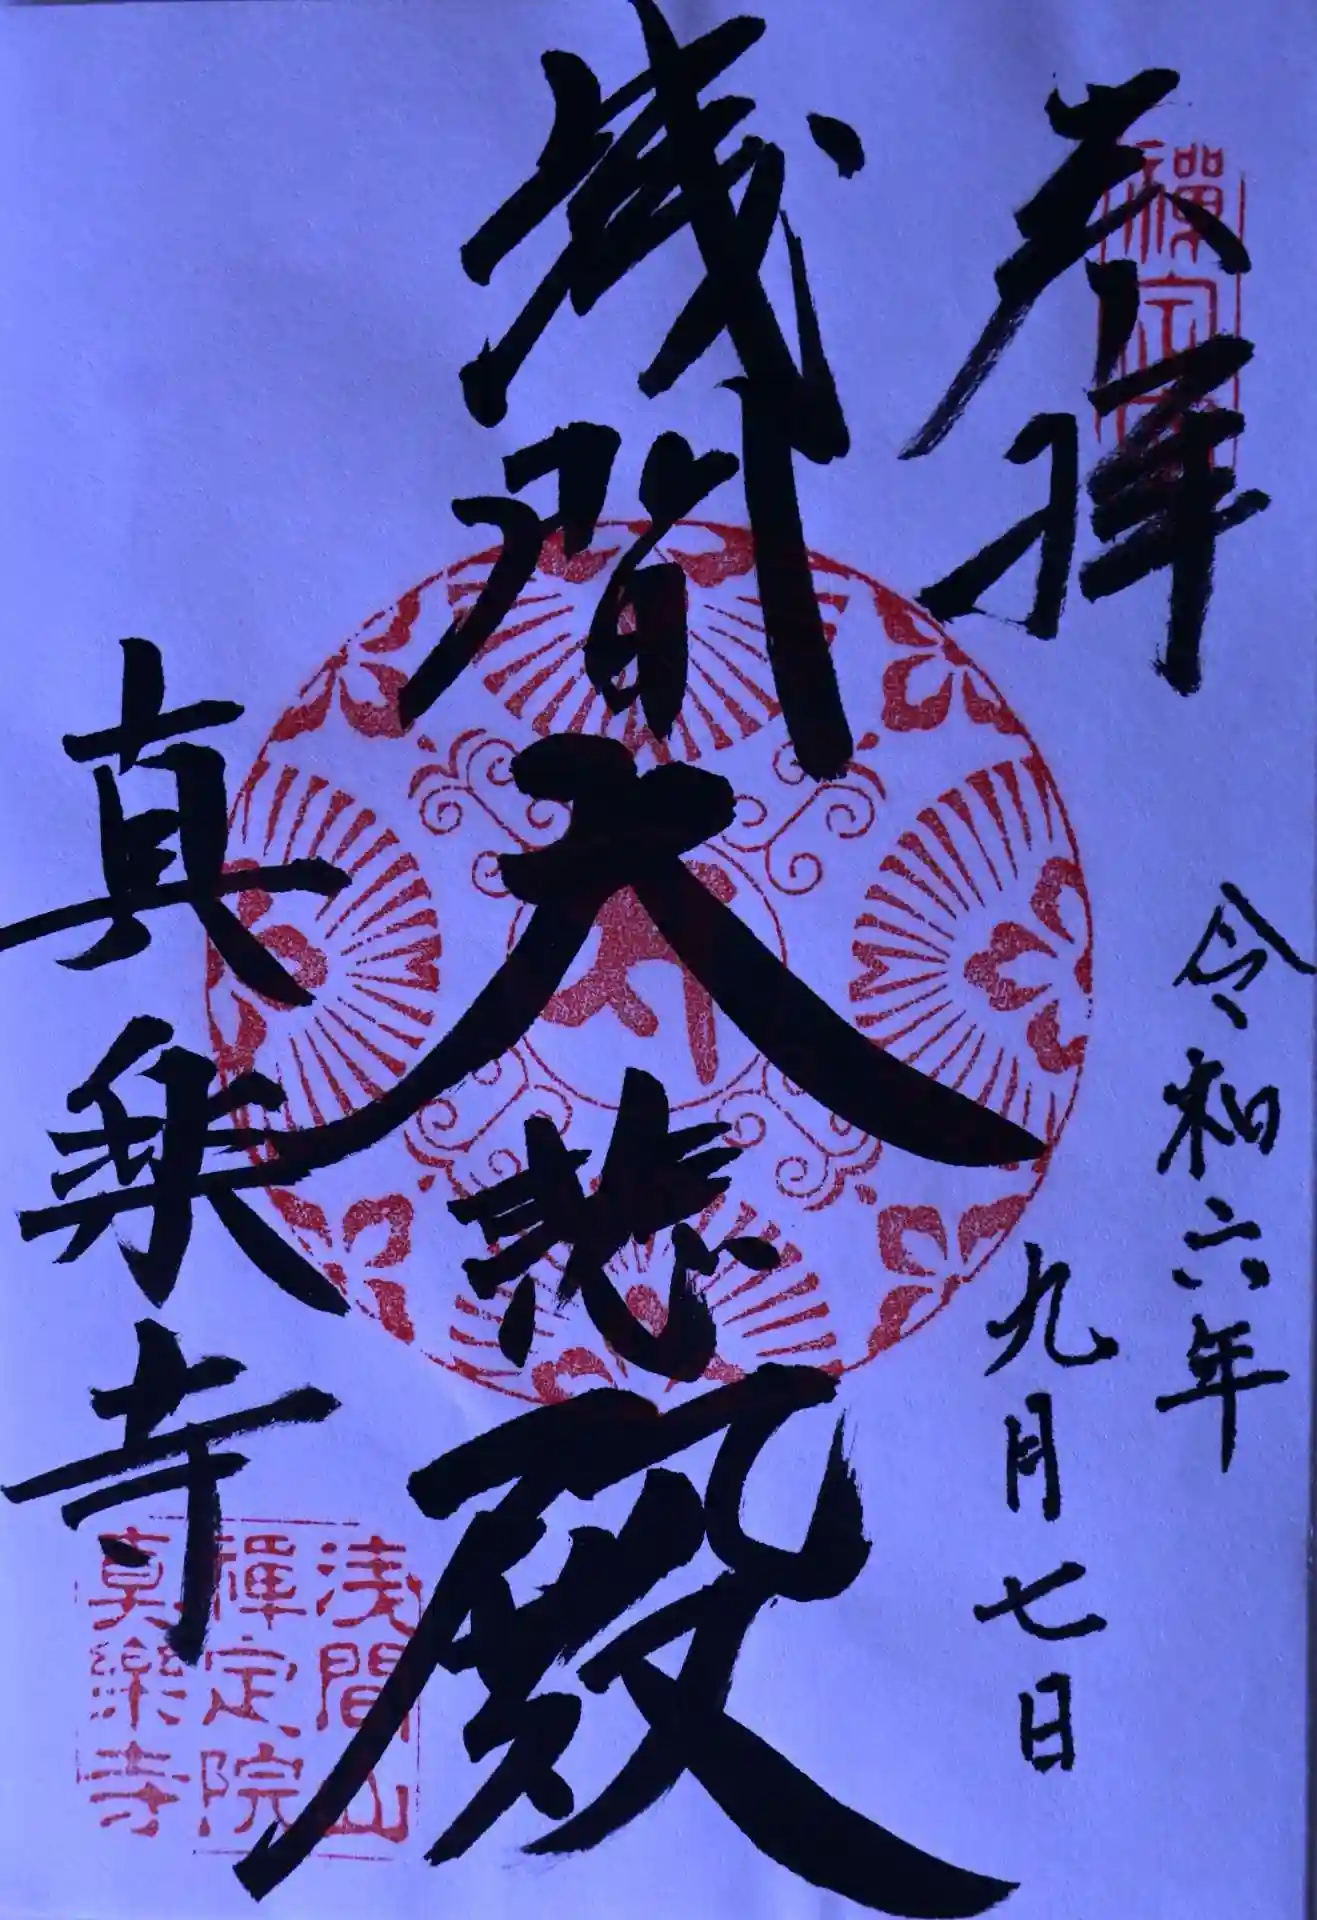 奉拝
禅定院
令和六年
九月七日
浅間大悲殿
真楽寺
浅間山
禅定院
真楽寺